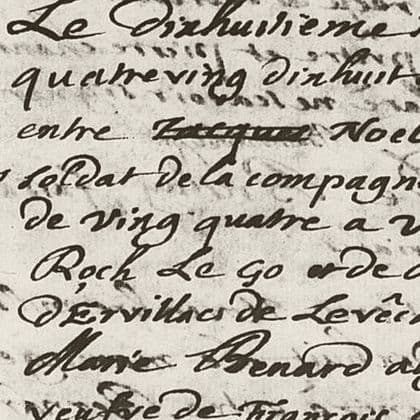 Le dixhuitieme
quatreving dixhuit
entre Jacques Noel
soldat de la compagn
de ving quatre a v
Roch Le Go et de
d'Ervillac de Levêc
Marie Benard a
veufve de François